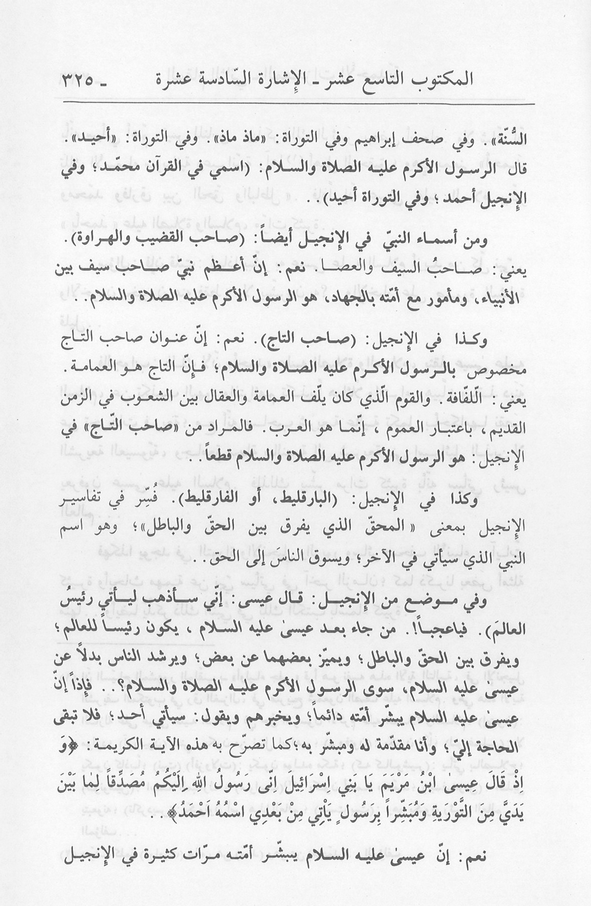 المكتوب التاسع عشر ـ الإشارة السّادسة عشرة ـ ٣٢٥
السُّنّة». وفي صحف إبراهيم وفي التوراة: «ماذ ماذ». وفي التوراة: «أحيد».
قال الرسول الأكرم عليه الصلاة والسلام: (اسمي في القرآن محمّد؛ وفي
الإنجيل أحمد؛ وفي التوراة أحيد)..
ومن أسماء النبيّ في الإنجيل أيضاً: (صاحب القضيب والهراوة).
يعني: صاحبُ السيف والعصا. نعم: إنّ أعظم نبيّ صاحب سيف بين
الأنبياء، ومأمور مع أمّته بالجهاد، هو الرسول الأكرم عليه الصلاة والسلام..
وكذا في الإنجيل: (صاحب التاج). نعم: إنّ عنوان صاحب التاج
مخصوص بالرسول الأكرم عليه الصلاة والسلام؛ فإنّ التاج هو العمامة.
يعني: الّلفّافة. والقوم الّذي كان يلّف العمامة والعقال بين الشعوب في الزمن
القديم، باعتبار العموم، إنّما هو العرب. فالمراد من «صاحب التّاج» في
الإنجيل: هو الرسول الأكرم عليه الصلاة والسلام قطعاً..
وكذا في الإنجيل: (البارقليط، أو الفارقليط). فُسِّر في تفاسير
الإنجيل بمعنى «المحقّ الذي يفرق بين الحقّ والباطل»؛ وهو اسم
النبي الذي سيأتي في الآخر؛ ويسوق الناس إلى الحق..
وفي موضع من الإنجيل: قال عيسى: إنّي سأذهب ليأتي رئيسُ
العالَم). فياعجباً!. من جاء بعد عيسىٰ عليه السلام، يكون رئيساً للعالم؛
ويفرق بين الحقّ والباطل؛ ويميّز بعضهما عن بعض؛ ويرشد الناس بدلاً عن
عيسىٰ عليه السلام، سوى الرسول الأكرم عليه الصلاة والسلام؟.. فإذاً إنّ
عيسىٰ عليه السلام يبشّر أمّته دائماً؛ ويخبرهم ويقول: سيأتي أحد؛ فلا تبقى
الحاجة إليّ؛ وأنا مقدّمة له ومبشّر به؛ كما تصرّح به هذه الآية الكريمة: ﴿وَ
اِذْ قَالَ عِيسى ابْنُ مَرْيَمَ يَا بَنِي اِسْرَائِيلَ اِنّى رَسُولُ اللهِ اِلَيْكُمْ مُصَدِّقاً لِمَا بَيْنَ
يَدَيَّ مِنَ التَّوْرَيةِ وَمُبَشِّراً بِرَسُولٍ يَاْتِي مِنْ بَعْدِي اسْمُهُ اَحْمَدُ﴾..
نعم: إنّ عيسىٰ عليه السلام يبشّر أمّته مرّات كثيرة في الإنجيل